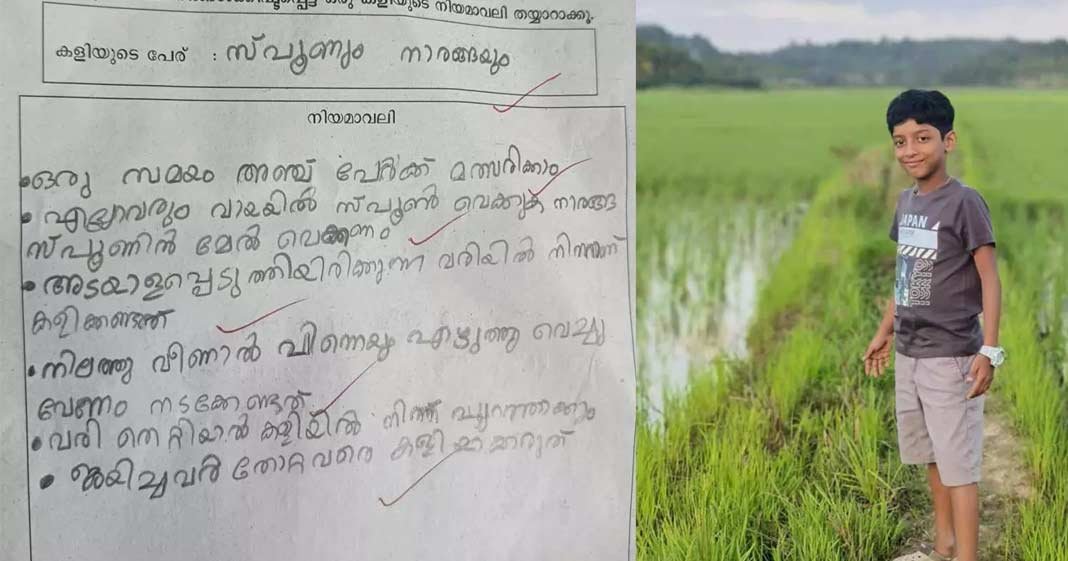 ഒരു കളിയുടെ നിയമാവലി തയ്യാറാക്കൂ.
കളിയുടെ പേര് : സ്പൂണും നാരങ്ങയും
നിയമാവലി
•ഒരു സമയം അഞ്ച് പേർക്ക് മത്സരിക്കാം
• എല്ലാവരും വായയിൽ സ്പൂൺ വെക്കുക നാരങ്ങ
സ്പൂണിൻ മേൽ വെക്കണം
• അടയാളപ്പെടുത്തിയിരിക്കുന്ന വരിയിൽ നിന്നാണ്
കളിക്കണ്ടത്
•നിലത്തു വീണാൽ പിന്നെയും എടുത്തു വെച്ചു
വേണം നടക്കേണ്ടത്
• വരി തെറ്റിയാൽ കളിയിൽ നിന്ന് പുറത്താക്കാം
• ജയിച്ചവർ തോറ്റവരെ കളിയാക്കരുത്
JAPAN